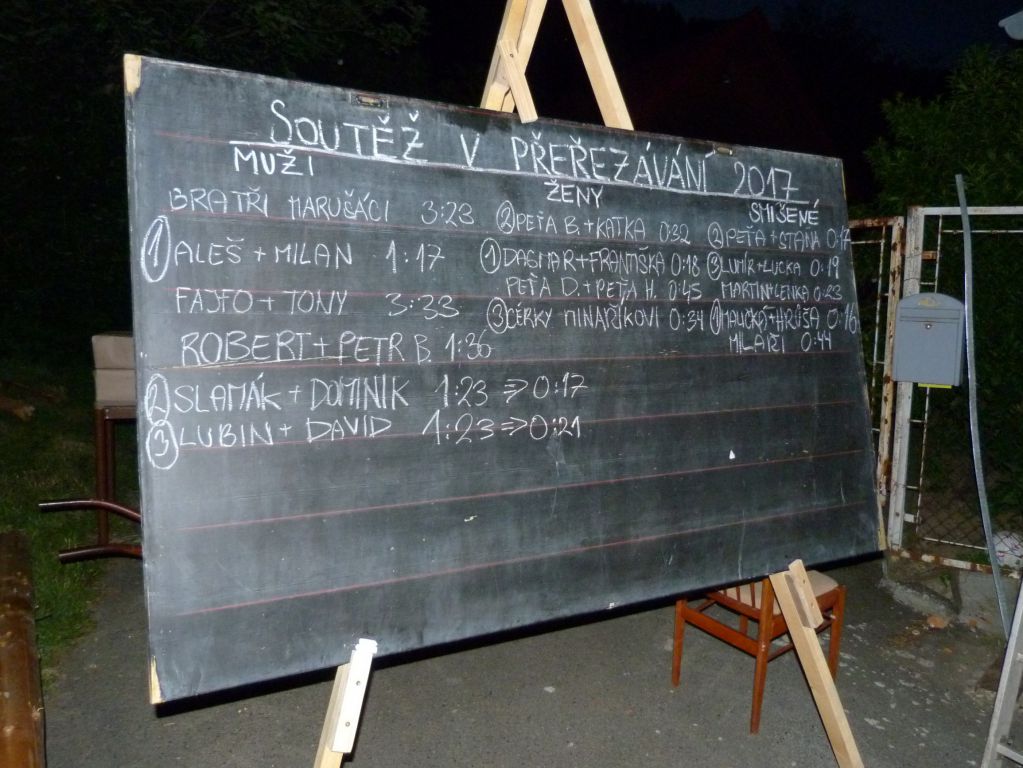 SOUTĚŽ V PŘEŘEZÁVÁNÍ 2017
MUŽI
BRATŘI MARUŠÁCI 3:23
1 ALEŠ + MILAN 1:17
FAJFO + TONY 3:33
ROBERT + PETR B. 1:36
2 SLAMÁK + DOMINIK 1:23 ⇒ 0:17
3 LUBIN + DAVID 1:23 ⇒ 0:21
ŽENY
2 PEŤA B. + KATKA 0:32
1 DAGMAR + FRANTIŠKA 0:18
PEŤA D. + PEŤA H. 0:45
3 CÉRKY MINAŘÍKOVI 0:34
SMIŠENÉ
2 PEŤA + STAŇA 0:17
3 LUMÍR + LUCKA 0:19
MARTIN + LENKA 0:23
1 MAUCKÁ + HRŮŠA 0:16
MILAŘI 0:44